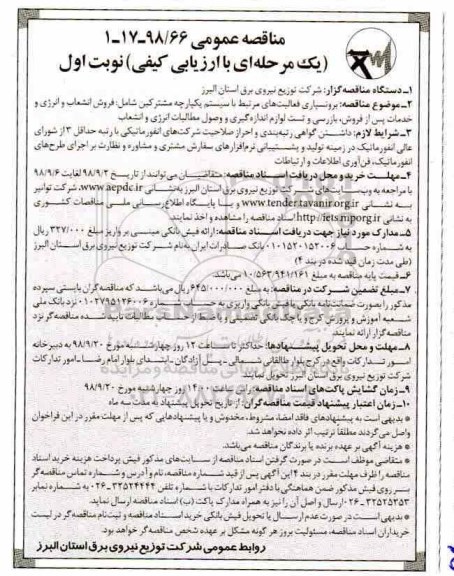 مناقصه عمومی ۹۸/۶۶-۱۷-۱
(یک مرحله‌ای با ارزیابی کیفی) نوبت اول
۱- دستگاه مناقصه‌گزار: شرکت توزیع نیروی برق استان البرز
۲- موضوع مناقصه: برونسپاری فعالیت‌های مرتبط با سیستم یکپارچه مشترکین شامل: فروش انشعاب و انرژی و
خدمات پس از فروش، بازرسی و تست لوازم اندازه‌گیری و وصول مطالبات انرژی و انشعاب
۳- شرایط لازم: داشتن گواهی رتبه‌بندی و احراز صلاحیت شرکت‌های انفورماتیکی با رتبه حداقل ۳ از شورای
عالی انفورماتیک در زمینه تولید و پشتیبانی نرم‌افزارهای سفارش مشتری و مشاوره و نظارت بر اجرای طرح‌های
انفورماتیک، فن‌آوری اطلاعات و ارتباطات
۴- مهلت خرید و محل دریافت اسناد مناقصه: متقاضیان می‌توانند از تاریخ ۹۸/۹/۲ لغایت ۹۸/۹/۶
با مراجعه به وب سایت‌های شرکت توزیع نیروی برق استان البرز به نشانی www.aepdc.ir، شرکت توانیر
به نشانی www.tender.tavanir.org.ir و یا پایگاه اطلاع‌رسانی ملی مناقصات کشوری
به نشانی http://iets.mporg.ir اسناد مناقصه را مشاهده و اخذ نمایند.
۵- مدارک مورد نیاز جهت دریافت اسناد مناقصه: ارائه فیش بانکی مبنی بر واریز مبلغ ۳۲۷/۰۰۰ ریال
به شماره حساب ۰۱۰۱۵۲۰۱۵۲۰۰۶ بانک صادرات ایران به‌نام شرکت توزیع نیروی برق استان البرز
(طی مدت زمان قید شده در بند ۴)
۶- قیمت پایه مناقصه به مبلغ ۱۰/۵۶۳/۹۴۱/۱۶۱ می‌باشد.
۷- مبلغ تضمین شرکت در مناقصه: به مبلغ ۶۴۵/۰۰۰/۰۰۰ ریال می‌باشد که مناقصه‌گران بایستی سپرده
مذکور را بصورت ضمانت‌نامه بانکی یا فیش بانکی واریزی به حساب شماره ۰۱۰۲۷۹۵۱۲۶۰۰۶ نزد بانک ملی
شعبه آموزش و پرورش کرج و یا چک بانکی تضمینی و یا ضمانت از محل مطالبات تایید شده مناقصه‌گر نزد
مناقصه‌گزار ارائه نمایند.
۸- مهلت و محل تحویل پیشنهادها: حداکثر تا ساعت ۱۲ روز چهارشنبه مورخ ۹۸/۹/۲۰ به دبیرخانه
امور تدارکات واقع در کرج بلوار طالقانی شمالی - پل آزادگان - ابتدای بلوار امام رضا - امور تدارکات
شرکت توزیع نیروی برق استان البرز تحویل نمایند.
۹- زمان گشایش پاکت‌های اسناد مناقصه: راس ساعت ۱۴:۰۰ روز چهارشنبه مورخ ۹۸/۹/۲۰
۱۰- زمان اعتبار پیشنهاد قیمت مناقصه‌گران: از تاریخ تحویل پیشنهاد به مدت سه ماه
* بدیهی است به پیشنهادهای فاقد امضا، مشروط، مخدوش و یا پیشنهادهایی که پس از مهلت مقرر در این فراخوان
واصل می‌گردند مطلقاً ترتیب اثر داده نخواهد شد.
* هزینه آگهی بر عهده برنده یا برندگان مناقصه می‌باشد.
* متقاضی موظف است در صورت گرفتن اسناد مناقصه از سایت‌های مذکور فیش پرداخت هزینه خرید اسناد
مناقصه را ظرف مهلت مقرر در بند ۴ این آگهی پس از قید شماره مناقصه، نام و آدرس و شماره تماس مناقصه‌گر
بر روی فیش مذکور ضمن هماهنگی با دفتر امور تدارکات با شماره تلفن ۳۲۵۲۴۴۴۲-۰۲۶ به شماره نمابر
۳۲۵۲۵۳۵۳-۰۲۶ ارسال و اصل آن را نیز به همراه مدارک پاکت (ب) اسناد مناقصه ارسال نماید.
* بدیهی است در صورت عدم ارسال یا تحویل فیش بانکی خرید اسناد مناقصه و ثبت‌نام مناقصه‌گر در لیست
خریداران اسناد مناقصه، مسئولیت بروز هر گونه مشکل بر عهده شخص مناقصه‌گر خواهد بود.
روابط عمومی شرکت توزیع نیروی برق استان البرز